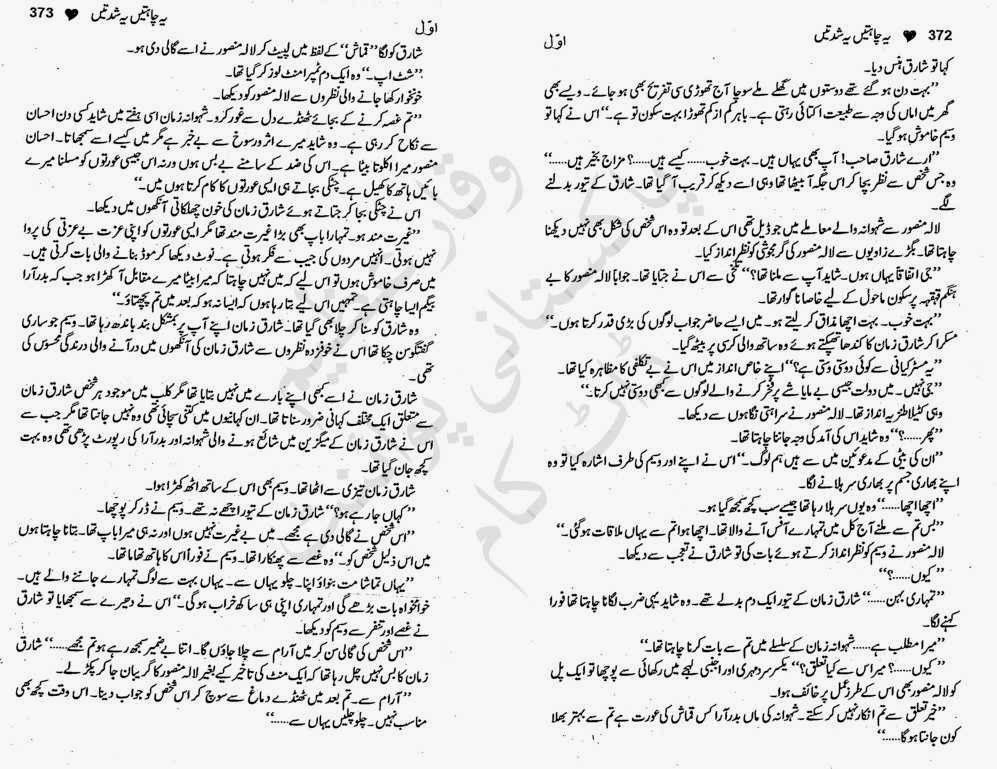 372 ♥ یہ چاہتیں یہ شدتیں
اوّل
کہا تو شارق ہنس دیا۔
”بہت دن ہو گئے تھے دوستوں میں گھلے ملے سوچا آج تھوڑی سی تفریح بھی ہو جائے۔ ویسے بھی
گھر میں اماں کی وجہ سے طبیعت اکتائی رہتی ہے۔ باہر کم از کم تھوڑا بہت سکون تو ہے۔“ اس نے کہا تو
وسیم خاموش ہو گیا۔
”ارے شارق صاحب! آپ بھی یہاں ہیں۔ بہت خوب...... کیسے ہیں......؟ مزاج بخیر ہیں......“
وہ جس شخص سے نظر بچا کر اس جگہ آ بیٹھا تھا وہی اسے دیکھ کر قریب آ گیا تھا۔ شارق کے تیور بدلنے
لگے۔
لالہ منصور سے شہوانہ والے معاملے میں جو ڈیل تھی اس کے بعد تو وہ اس شخص کی شکل بھی نہیں دیکھنا
چاہتا تھا۔ بگڑے زاویوں سے لالہ منصور کی گرمجوشی کو نظر انداز کیا۔
”جی اتفاقاً یہاں ہوں۔ شاید آپ سے ملنا تھا؟“ تلخی سے اس نے جتایا تھا۔ جواباً لالہ منصور کا بے
ہنگم قہقہہ پرسکون ماحول کے لیے خاصا ناگوار تھا۔
”بہت خوب۔ بہت اچھا مذاق کر لیتے ہو۔ میں ایسے حاضر جواب لوگوں کی بڑی قدر کرتا ہوں۔“
مسکرا کر شارق زمان کا کندھا تھپکتے ہوئے وہ ساتھ والی کرسی پر بیٹھ گیا۔
”یہ مسٹر کیانی سے کوئی دوستی وستی ہے؟“ اپنے خاص انداز میں اس نے بے تکلفی کا مظاہرہ کیا تھا۔
”جی نہیں۔ میں دولت جیسی بے مایا شے پر فخر کرنے والے لوگوں سے کبھی دوستی نہیں کرتا۔“
وہی کٹیلا طنزیہ انداز تھا۔ لالہ منصور نے سراہتی نگاہوں سے دیکھا۔
”پھر......؟“ وہ شاید اس کی آمد کی وجہ جاننا چاہتا تھا۔
”ان کی بیٹی کے مدعوئین میں سے ہیں ہم لوگ۔“ اس نے اپنے اور وسیم کی طرف اشارہ کیا تو وہ
اپنے بھاری جسم پر بھاری سر ہلانے لگا۔
”اچھا اچھا......“ وہ یوں سر ہلا رہا تھا جیسے سب کچھ سمجھ گیا ہو۔
”بس تم سے ملنے آج کل میں تمہارے آفس آنے والا تھا۔ اچھا ہوا تم سے یہاں ملاقات ہو گئی۔“
لالہ منصور نے وسیم کو نظر انداز کرتے ہوئے بات کی تو شارق نے تعجب سے دیکھا۔
”کیوں......؟“
”تمہاری بہن......“ شارق زمان کے تیور ایک دم بدلے تھے۔ وہ شاید یہی ضرب لگانا چاہتا تھا فوراً
کہنے لگا۔
”میرا مطلب ہے...... شہوانہ زمان کے سلسلے میں تم سے بات کرنا چاہتا تھا۔“
”کیوں......؟ میرا اس سے کیا تعلق؟“ یکسر سرد مہری اور اجنبی لہجے میں رکھائی سے پوچھا تو ایک پل
کو لالہ منصور بھی اس کے طرز عمل پر خائف ہوا۔
”خیر تعلق سے تم انکار نہیں کر سکتے۔ شہوانہ کی ماں بدر آرا کس قماش کی عورت ہے تم سے بہتر بھلا
کون جانتا ہوگا......“
373 ♥ یہ چاہتیں یہ شدتیں
اوّل
شارق کو لگا ”قماش“ کے لفظ میں لپیٹ کر لالہ منصور نے اسے گالی دی ہو۔
”شٹ اپ۔“ وہ ایک دم ٹمپرامنٹ لوز کر گیا تھا۔
خونخوار کھا جانے والی نظروں سے لالہ منصور کو دیکھا۔
”تم غصہ کرنے کے بجائے ٹھنڈے دل سے غور کرو۔ شہوانہ زمان اسی ہفتے میں شاید کسی دن احسان
سے نکاح کر رہی ہے۔ وہ شاید میرے اثر و رسوخ سے بے خبر ہے مگر میں کیسے اسے سمجھاتا۔ احسان
منصور میرا اکلوتا بیٹا ہے۔ اس کی ضد کے سامنے بے بس ہوں ورنہ اس جیسی عورتوں کو مسلنا میرے
بائیں ہاتھ کا کھیل ہے۔ چٹکی بجاتے ہی ایسی عورتوں کا کام کرتا ہوں میں۔“
اس نے چٹکی بجا کر جتاتے ہوئے شارق زمان کی خون چھلکاتی آنکھوں میں دیکھا۔
”غیرت مند ہو۔ تمہارا باپ بھی بڑا غیرت مند تھا مگر ایسی عورتوں کو اپنی عزت بے عزتی کی پروا
نہیں ہوتی۔ انہیں مردوں کی جیب سے فکر ہوتی ہے۔ نوٹ دیکھا کر موڈ بنانے والی بات کرتی ہیں۔
میں صرف خاموش ہوں تو اس لیے کہ میں نہیں چاہتا کہ میرا بیٹا میرے مقابل آ کھڑا ہو جب کہ بدر آرا
بیگم ایسا چاہتی ہے۔ تمہیں اس لیے بتا رہا ہوں کہ ایسا نہ ہو کہ بعد میں تم پچھتاؤ۔“
وہ شارق کو سنا کر چلا بھی گیا تھا۔ شارق زمان اپنے آپ پر بمشکل بند باندھ رہا تھا۔ وسیم جو ساری
گفتگو سن چکا تھا اس نے خوفزدہ نظروں سے شارق زمان کی آنکھوں میں در آنے والی درندگی محسوس کی
تھی۔
شارق زمان نے اسے کبھی اپنے بارے میں نہیں بتایا تھا مگر کلب میں موجود ہر شخص شارق زمان
سے متعلق ایک مختلف کہانی ضرور سناتا تھا۔ ان کہانیوں میں کتنی سچائی تھی وہ نہیں جانتا تھا مگر جب سے
اس نے شارق زمان کے میگزین میں شائع ہونے والی شہوانہ اور بدر آرا کی رپورٹ پڑھی تھی وہ بہت
کچھ جان گیا تھا۔
شارق زمان تیزی سے اٹھا تھا۔ وسیم بھی اس کے ساتھ اٹھ کھڑا ہوا۔
”کہاں جا رہے ہو؟“ شارق زمان کے تیور اچھے نہ تھے۔ وسیم نے ڈر کر پوچھا۔
”اس شخص نے گالی دی ہے مجھے۔ میں بے غیرت نہیں ہوں اور نہ ہی میرا باپ تھا۔ بتانا چاہتا ہوں
میں اس ذلیل شخص کو۔“ وہ غصے سے پھنکارا تھا۔ وسیم نے فوراً اس کا ہاتھ تھاما تھا۔
”یہاں تماشا مت بنواؤ اپنا۔ چلو یہاں سے۔ یہاں بہت سے لوگ تمہارے جاننے والے ہیں۔
خوامخواہ بات بڑھے گی اور تمہاری اپنی ہی ساکھ خراب ہوگی۔“ اس نے دھیرے سے سمجھایا تو شارق
نے غصے اور تنفر سے وسیم کو دیکھا۔
”اس شخص کی گالی سن کر میں آرام سے چلا جاؤں گا۔ اتنا بے ضمیر سمجھ رہے ہو تم مجھے......“ شارق
زمان کا بس نہیں چل رہا تھا کہ ایک منٹ کی تاخیر کیے بغیر لالہ منصور کا گریبان جا کر پکڑ لے۔
”آرام سے۔ تم بعد میں ٹھنڈے دماغ سے سوچ کر اس شخص کو جواب دینا۔ اس وقت کچھ بھی
مناسب نہیں۔ چلو چلیں یہاں سے......“
پاکستانی پوائنٹ
ڈاٹ کام